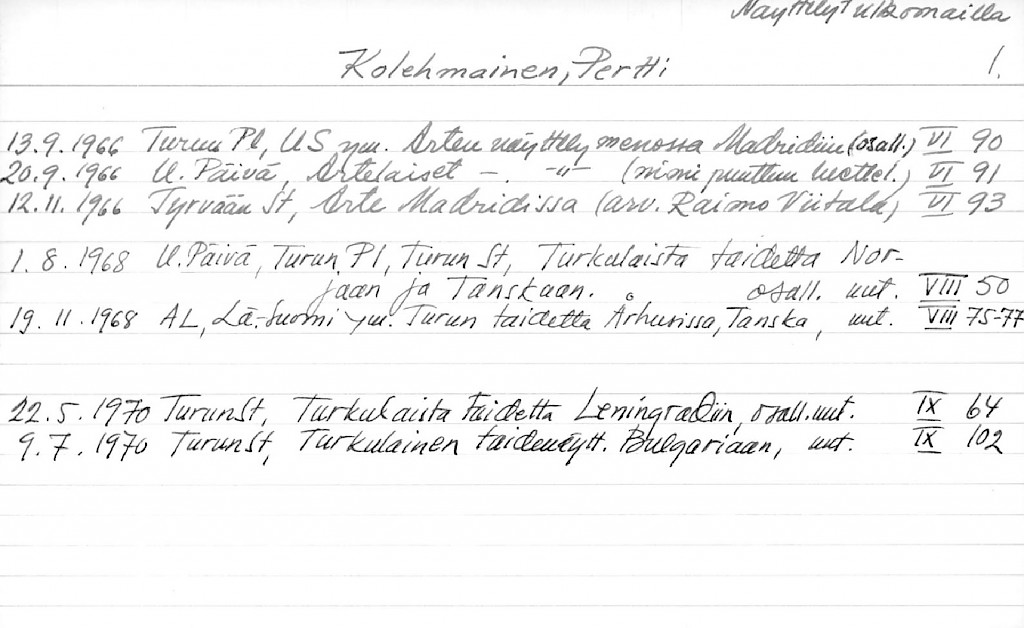 Näyttelyt ulkomailla
Kolehmainen, Pertti 1.
13.9.1966 Turun Pl, US ym. Arten näyttely menossa Madridiin (osall.) VI 90
20.9.1966 U. Päivä, Artelaiset -. -"- (nimi puuttuu luettel.) VI 91
12.11.1966 Tyrvään St, Arte Madridissa (arv. Raimo Viitala) VI 93
1.8.1968 U.Päivä, Turun Pl, Turun St, Turkulaista taidetta Nor-
jaan ja Tanskaan. osall. uut. VIII 50
19.11.1968 AL, Lä-Suomi ym. Turun taidetta Århusissa, Tanska, uut. VIII 75-77
22.5.1970 TurunSt, Turkulaista taidetta Leningradiin, osall. uut. IX 64
9.7.1970 TurunSt, Turkulainen taidenäytt. Bulgariaan, uut. IX 102